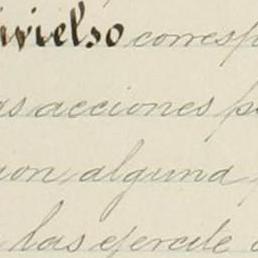 ivielso corresp
as acciones p
ion alguna
las ejercite